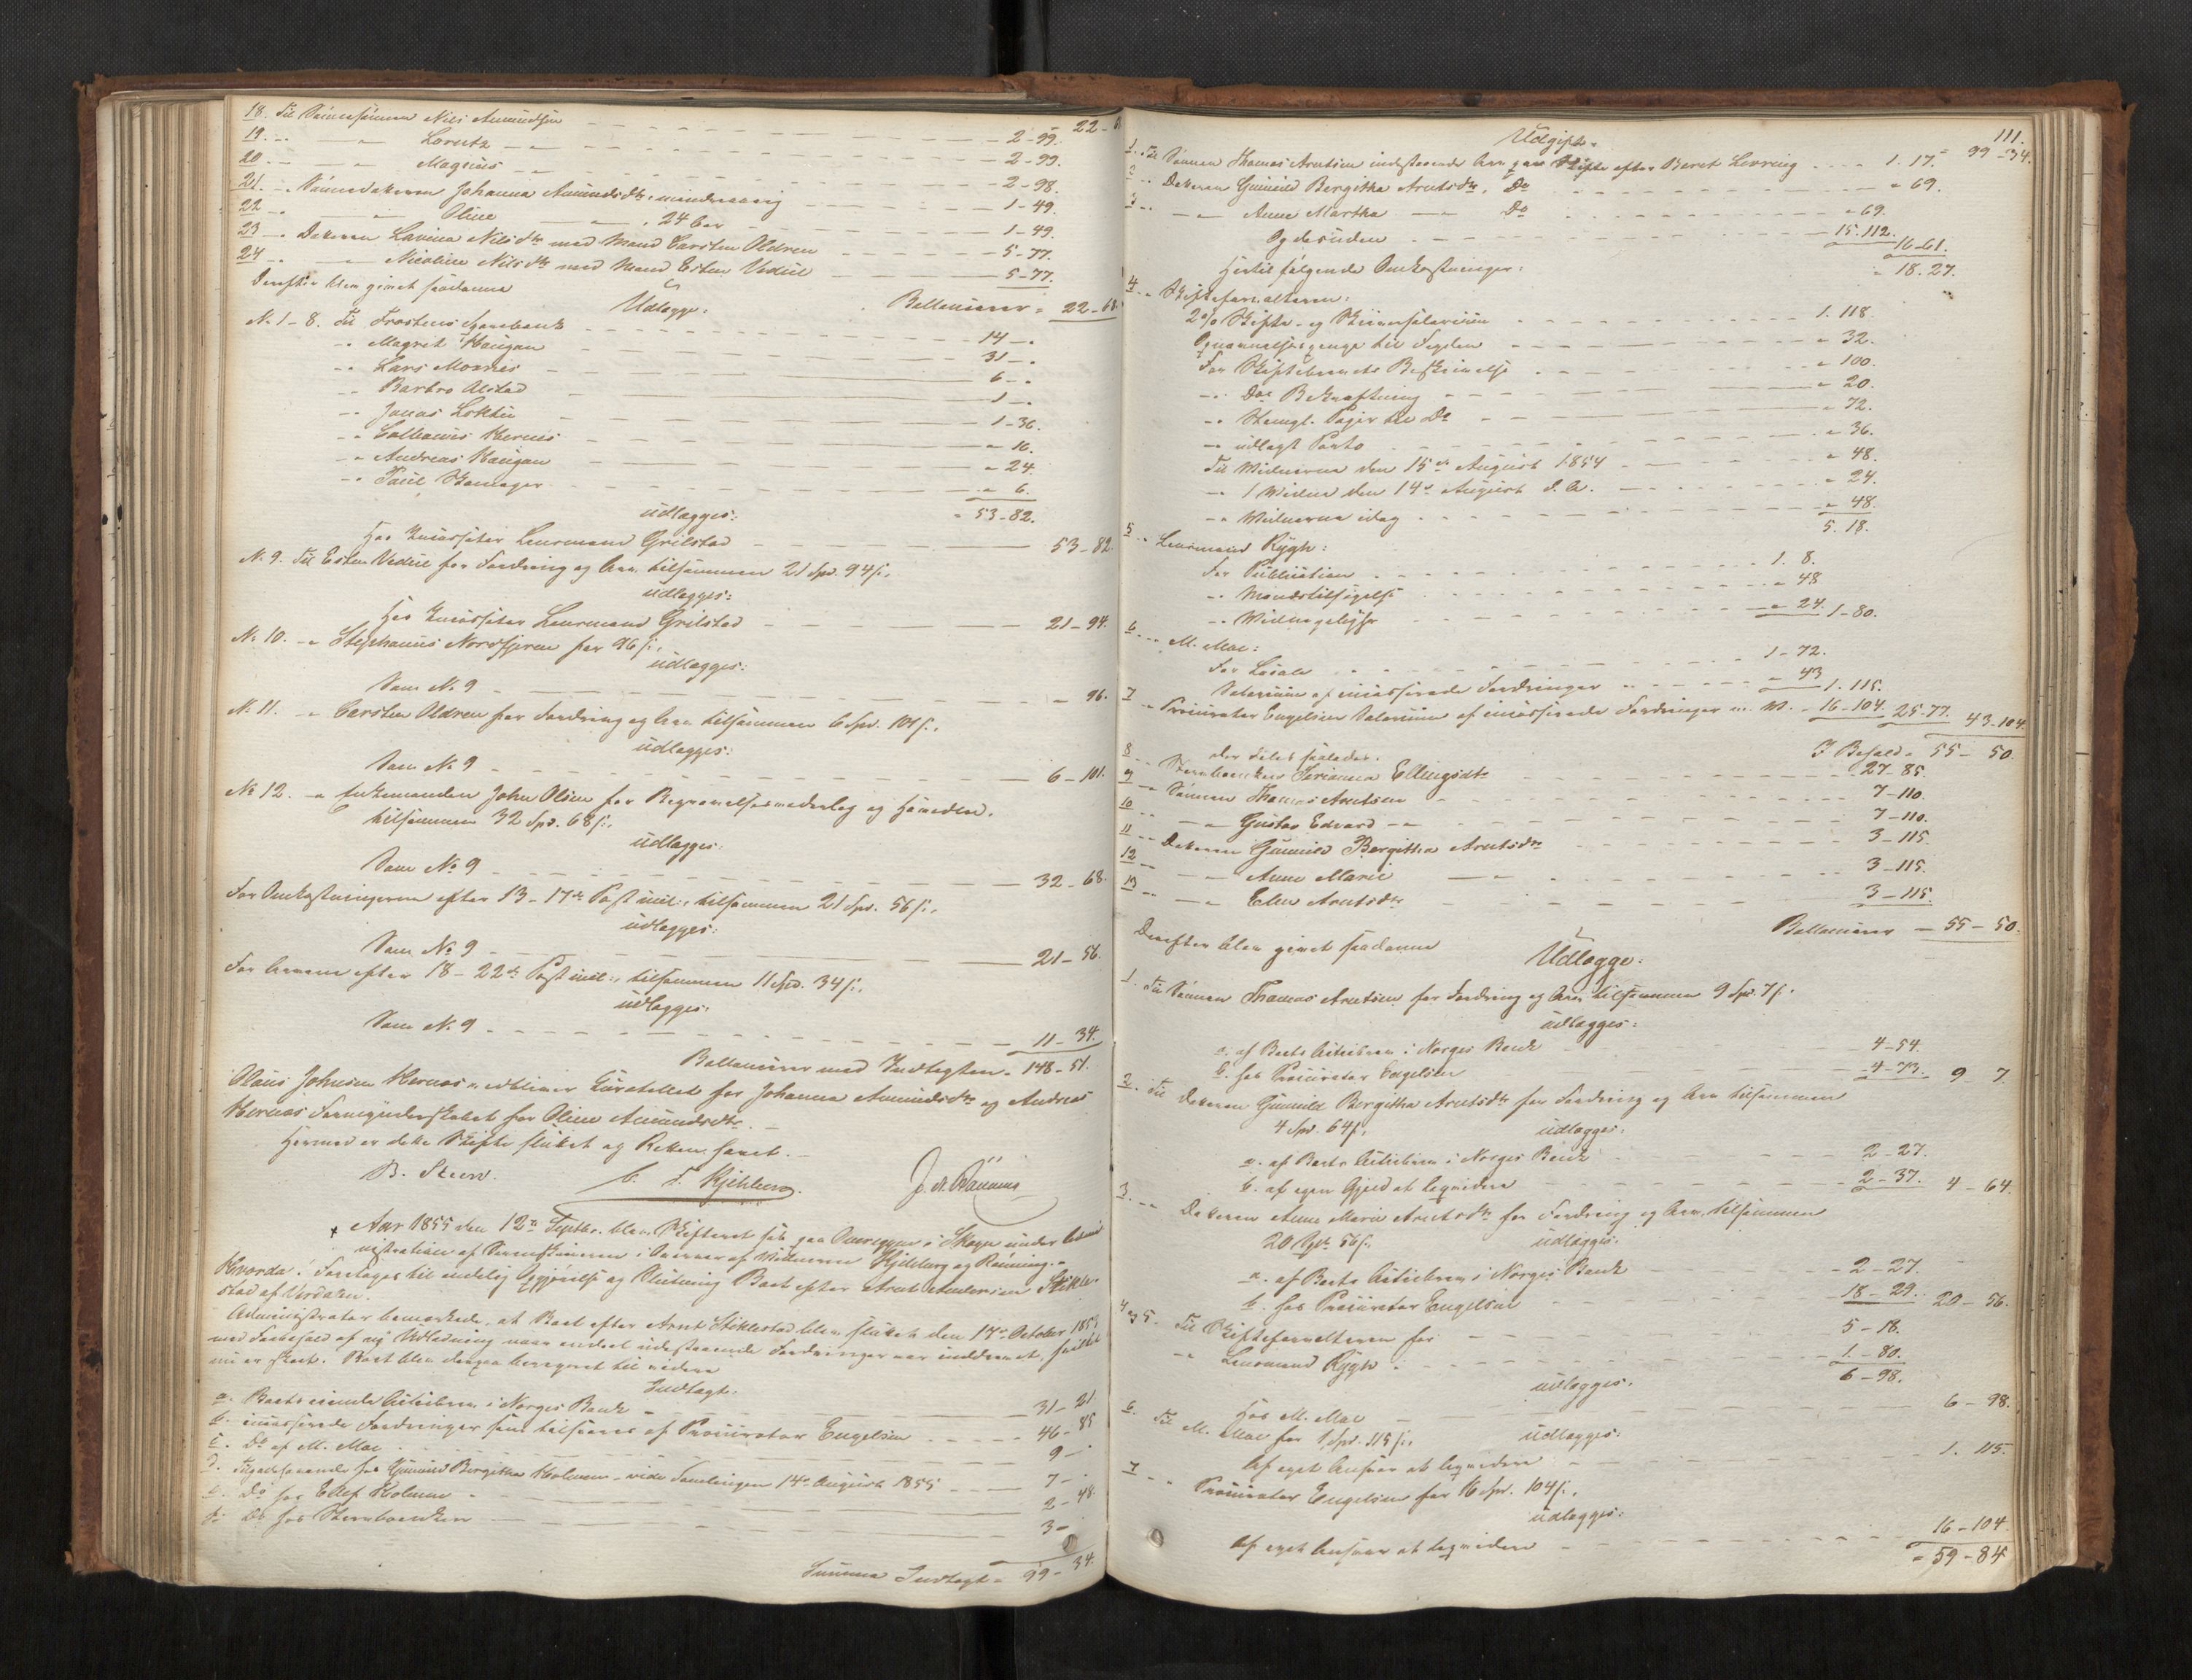 18. Til Sønnesønnen Nils Amundsen — 2-99. 22-68
19. - — Lorntz — 2-99.
20. - — Magnus — 2-98.
21. - Sønnedatteren Johanna Amundsdtr. mindreaarig — 1-49.
22 - — Oline — 24 Aar — 1-49.
23 - Datteren Lavina Nilsdtr med Mand Carsten Oldren — 5-77.
24 - — Nicoline Nilsdtr med Mand Esten Veduul — 5-77.
Ballancerer - 22-68.
Derefter blev gjort saadanne
Udlægge:
No 1-8. Til Frostens Sparebank — 14-"
-" Magrit Haugan — 31-"
-" Lars Mosnes — 6-"
-" Barbro Alstad — 1-"
-" Jonas Loktu — 1-36.
-" Kernes — " 16.
-" Andreas Haugan — " 24.
-" Paul — " 6.
" 53-82.
udlægges:
Hos Incassator Lensmand Grilstad — 53-82.
No 9. Til Esten Veduul for Fordring og Arv tilsammen 21 Spd. 94 s.
udlægges:
Hos Incassator Lensmand Grilstad — 21-94.
No 10. -" Stephanus Nordfjeren for 96 s.
udlægges:
Som No 9 — " 96.
No 11. -" Carsten Oldren for Fordring og Arv tilsammen 6 Spd. 101 s.
udlægges:
Som No 9 — 6-101.
No 12. -" Enkemanden John Olsen for Begravelsesvederlag og Hovedlod.
tilsammen 32 Spd. 68 s.
udlægges:
Som No 9 — 32-68.
For Omkostningerne efter 13-17de Post incl., tilsammen 21 Spd. 56 s.
udlægges:
Som No 9 — 21-56.
For Arvene efter 18-22de Post incl., tilsammen 11 Spd. 34 s.
udlægges:
Som No 9 — 11-34.
Ballancerer med Indtægten - 148-51.
Olaus Johnsen Kernes vedbliver Curatellet for Johanna Amundsdtr og Andreas
Kernes Formynderskabet for Oline Amundsdtr. —
Hermed er dette Skifte sluttet og Retten hævet. —
B. Steen. C. F. Kjelberg. J. A. Rønning
Aar 1855 den 12te Septbr. blev Skifteret sat paa i Skogn under Admi-
nistration af Sorenskriveren i Overvær af Vidnerne Kjelberg og Rønning.
Hvorda: Foretages til endelig Opgjørelse og Slutning Boet efter Arnt Andersen Stikle-
stad af Værdalen.
Administrator bemærkede, at Boet efter Arnt Stiklestad blev sluttet den 17de October 1853
med Forbehold af ny Udlodning naar endeel udestaaende Fordringer var inddrevet, hvilket
nu er skeet. Boet blev derpaa beregnet til videre
Indtægt:
a. Boets eiende Actiebrev i Norges Bank — 31-21
b. incasserede Fordringer som tilsvares af Procurator Engelsen — 46-85
c. Do af M. Moe — 9-"
d. Tilgodehavende hos Gunnild Bergitha Holmen - vide Samlingen 14de August 1855 — 7-"
e. Do hos Ellef Holmen — 2-48.
f. Do hos Stervboenken — 3-"
Summa Indtægt - 99-34.
111.
Udgift.
99-34.
1. Til Sønnen Thomas Arntsen indestaaende Arv paa Skifte efter Beret Levring — 1.17.
2 - Datteren Gunnild Bergitha Arntsdtr, Do — " 69.
3 - — Anne Martha — Do — " 69.
Og desuden — 15.112.
16-61.
Hertil følgende Omkostninger: " 18.27.
4 - Skifteforvalteren:
2 % Skifte- og Skriversalarium — 1.118.
Opnævnelsespenge til Fogden — " 32.
For Skiftebrevets Beskrivelse — " 100.
-" Dos Bekræftning — " 20.
-" Stempl. Papir til Do — " 72.
-" udlagt Porto — " 36.
Til Vidnerne den 15de August 1854 — " 48.
-" 1 Vidne den 14de August d. A. — " 24.
-" Vidnerne idag — " 48.
5.18.
5 - Lensmand Rygh:
For Publication — 1.8.
-" Mændstilsigelse — " 48
-" — " 24. 1-80.
6 - M. Moe:
For — 1-72.
Salarium af incasserede Fordringer — " 43 1.115.
7 - Procurator Engelsen Salarium af incasserede Fordringer m. V. - 16-104. 25-77. 43-104
I Behold - 55-50.
der deles saaledes:
8 - Stervboenken Serianna Ellingsdtr — 27-85.
9 - Sønnen Thomas Arntsen — 7-110.
10 - — Gustav Edvard — 7-110.
11 - Datteren Gunnild Bergitha Arntsdtr — 3-115.
12 - — Anne Marie — 3-115.
13 - — Elen Arntsdtr — 3-115.
Ballancerer — 55-50.
Derefter blev gjort saadanne
Udlægge:
1. Til Sønnen Thomas Arntsen for Fordring og Arv tilsammen 9 Spd. 7 s.
udlægges:
a. af Boets Actiebrev i Norges Bank — 4-54.
b. hos Procurator Engelsen — 4-73. 9-7
2. Til Datteren Gunnild Bergitha Arntsdtr for Fordring og Arv tilsammen
4 Spd. 64 s. udlægges:
a. af Boets Actiebrev i Norges Bank — 2-27.
b. af egen Gjeld at liqvidere — 2-37. 4-64.
3. - Datteren Anne Marie Arntsdtr for Fordring og Arv, tilsammen
20 Spd. 56 s. udlægges:
a. af Boets Actiebrev i Norges Bank — 2-27.
b. hos Procurator Engelsen — 18-29. 20-56.
4 og 5. Til Skifteforvalteren for — 5-18.
-" Lensmand Rygh — 1-80.
6-98.
udlægges:
Hos M. Moe — 6-98.
6. Til M. Moe for 1 Spd. 115 s. udlægges:
Af eget Ansvar at liqvidere — 1.115.
7 - Procurator Engelsen for 16 Spd. 104 s.
udlægges:
Af eget Ansvar at liqvidere — 16-104.
" 59-84